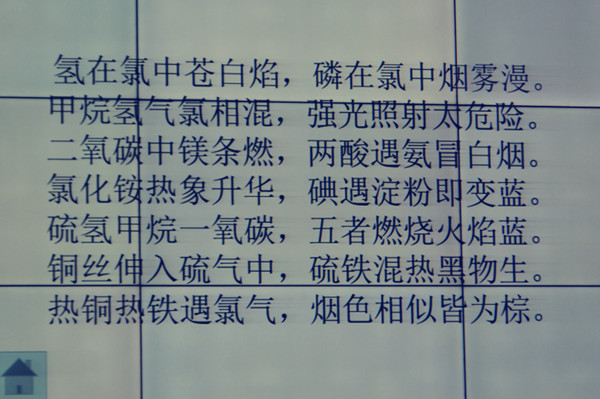 氢在氯中苍白焰，磷在氯中烟雾漫。
甲烷氢气氯相混，强光照射太危险。
二氧碳中镁条燃，两酸遇氨冒白烟。
氯化铵热象升华，碘遇淀粉即变蓝。
硫氢甲烷一氧碳，五者燃烧火焰蓝。
铜丝伸入硫气中，硫铁混热黑物生。
热铜热铁遇氯气，烟色相似皆为棕。